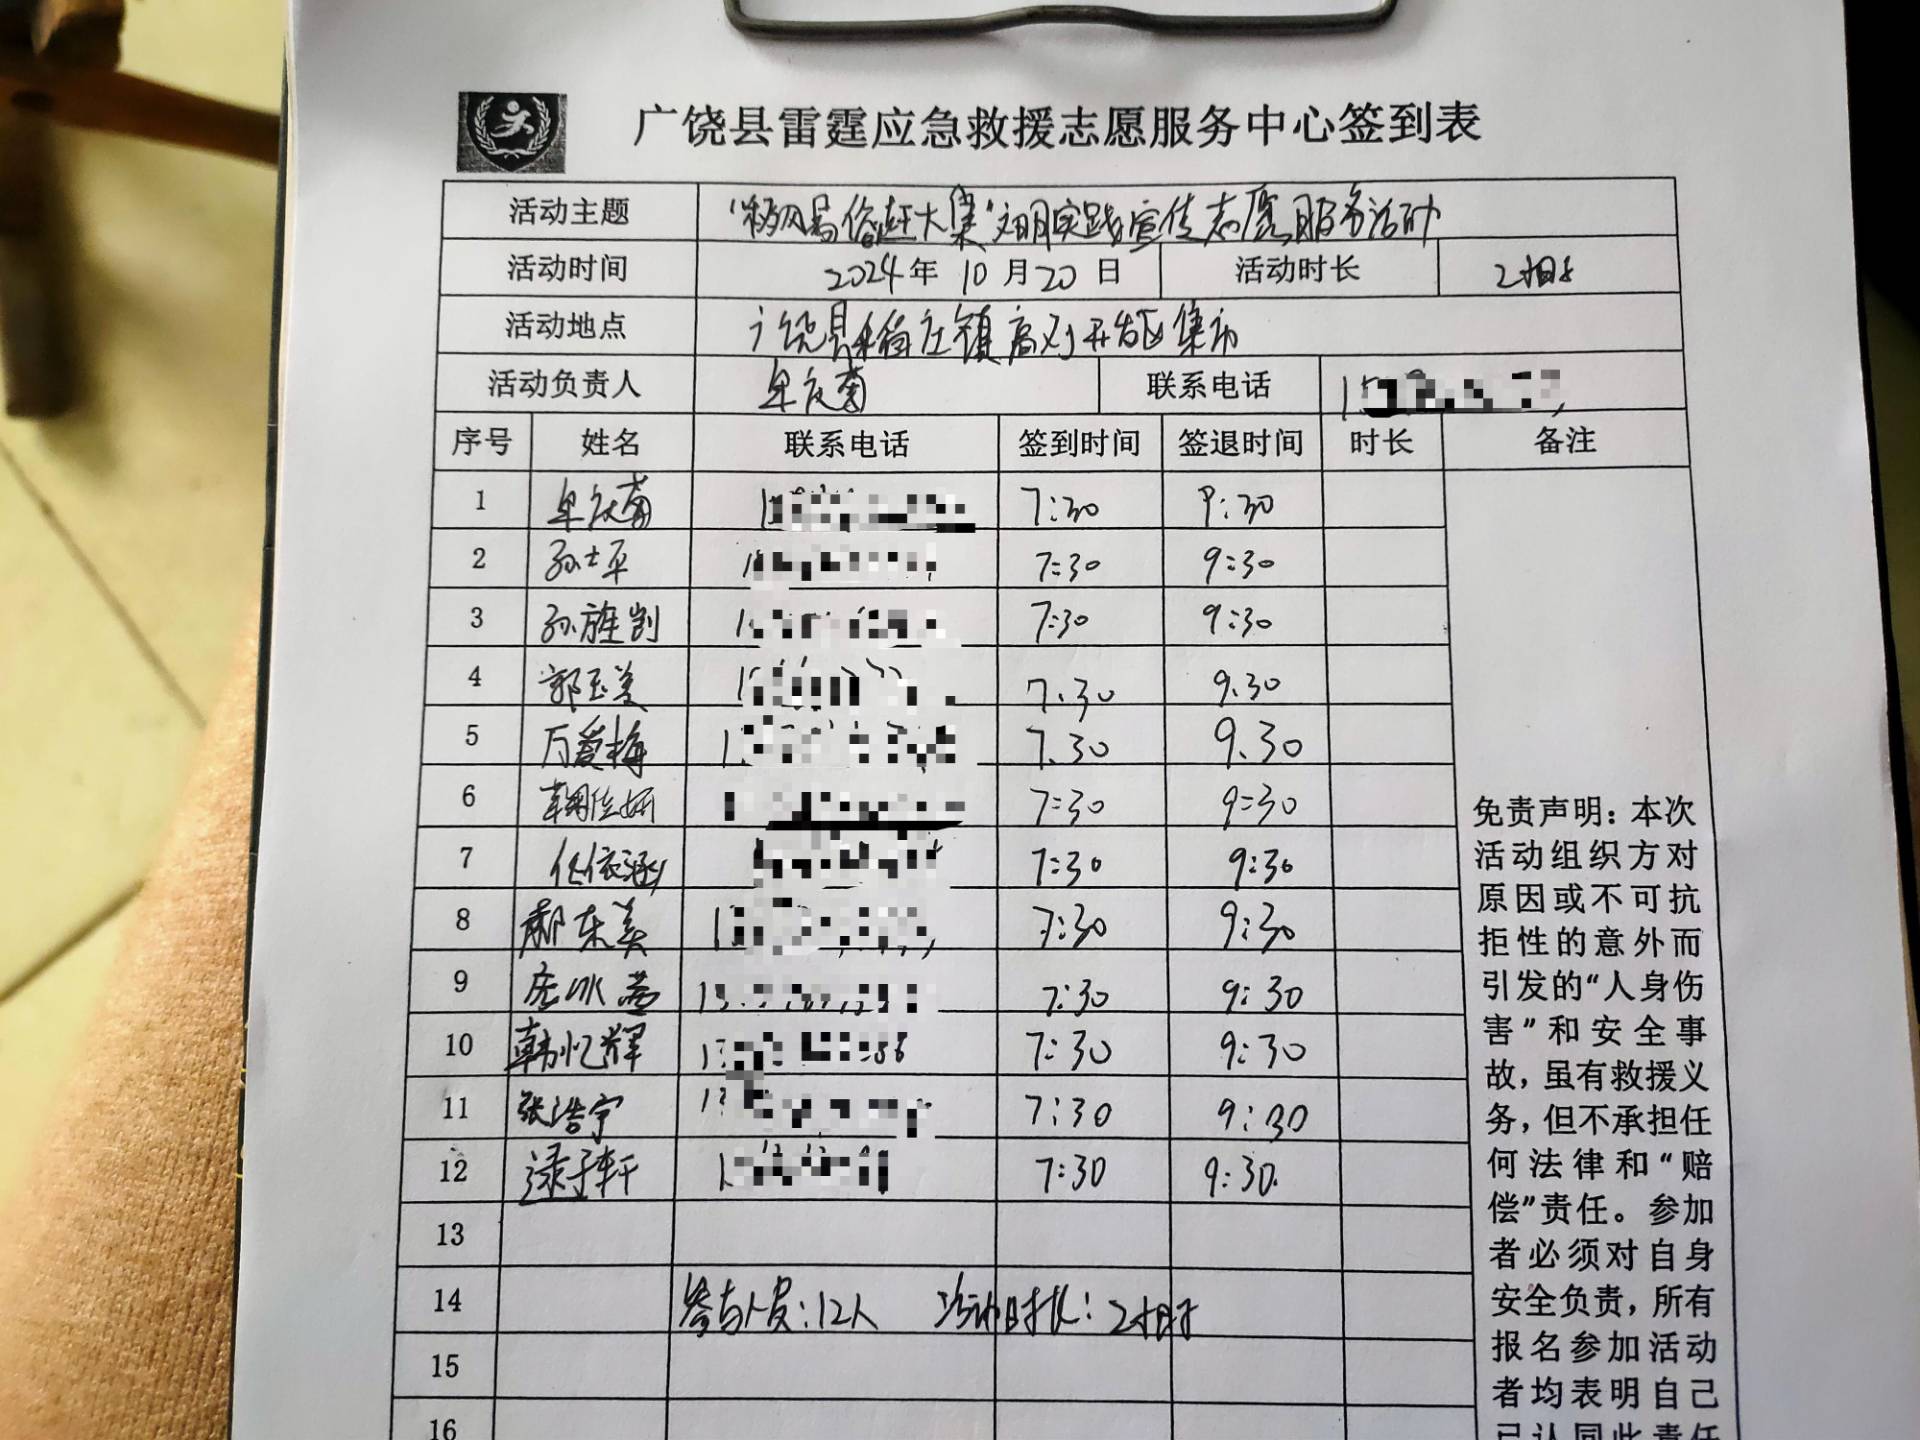 广饶县雷霆应急救援志愿服务中心签到表
活动主题 “移风易俗赶大集”文明实践宣传志愿服务活动
活动时间 2024年 10月20日 活动时长 2小时
活动地点 广饶县稻庄镇高对开发区集市
活动负责人 联系电话
序号 姓名 联系电话 签到时间 签退时间 时长 备注
1 7:30 9:30
2 孙士平 7:30 9:30
3 孙旌凯 7:30 9:30
4 郭玉美 7.30 9.30
5 万爱梅 7.30 9.30
6 7:30 9:30
7 任依涵 7:30 9:30
8 郝东美 7:30 9:30
9 7:30 9:30
10 韩忆辉 7:30 9:30
11 张浩宇 7:30 9:30
12 逯子轩 7:30 9:30.
13
14 参与人员:12人 活动时长:2小时
15
16
免责声明：本次
活动组织方对
原因或不可抗
拒性的意外而
引发的“人身伤
害”和安全事
故，虽有救援义
务，但不承担任
何法律和“赔
偿”责任。参加
者必须对自身
安全负责，所有
报名参加活动
者均表明自己
已认同此责任